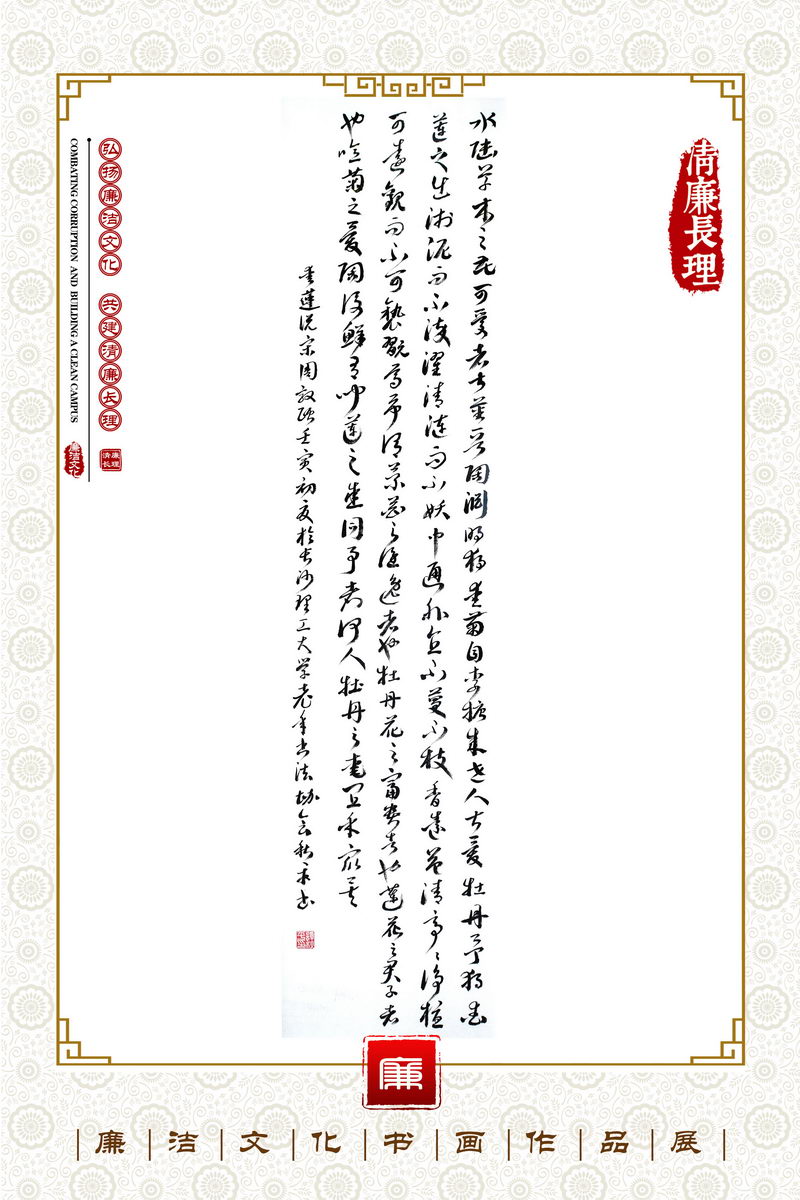 清廉長理
水陸草木之花可愛者甚蕃晋陶淵明独愛菊自李唐来世人甚愛牡丹予独愛
蓮之出淤泥而不染濯清漣而不妖中通外直不蔓不枝香遠益清亭亭净植
可遠觀而不可褻翫焉予谓菊花之隐逸者也牡丹花之富贵者也蓮花之君子者
也噫菊之愛陶後鮮有闻蓮之愛同予者何人牡丹之愛宜乎衆矣
愛蓮说宋周敦颐壬寅初夏於长沙理工大学老年书法协会
弘扬廉洁文化 共建清廉长理
清廉长理
COMBATING CORRUPTION AND BUILDING A CLEAN CAMPUS
廉洁文化
廉
廉洁文化书画作品展